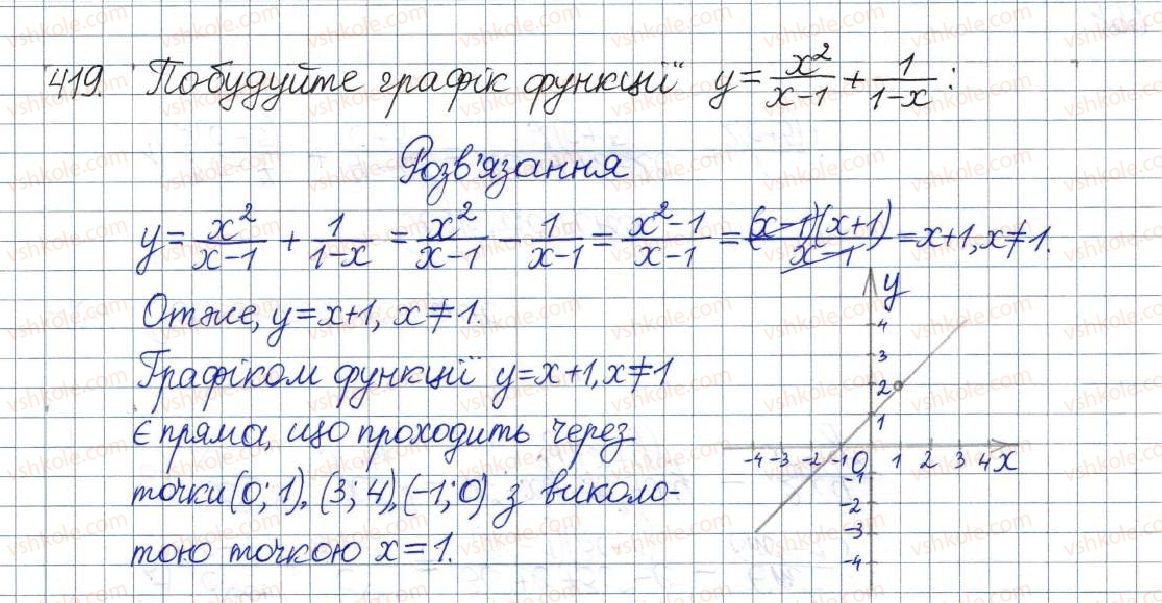 419. Побудуйте графік функції y = x²/(x-1) + 1/(1-x):
Розв'язання
y = x²/(x-1) + 1/(1-x) = x²/(x-1) - 1/(x-1) = (x²-1)/(x-1) = (x-1)(x+1)/(x-1) = x+1, x≠1.
Отже, y=x+1, x≠1.
Графіком функції y=x+1, x≠1
є пряма, що проходить через
точки (0; 1), (3; 4), (-1; 0) з виколо-
тою точкою x=1.
y
4
3
2
1
-4 -3 -2 -1 0 1 2 3 4 x
-1
-2
-3
-4
vshkole.com